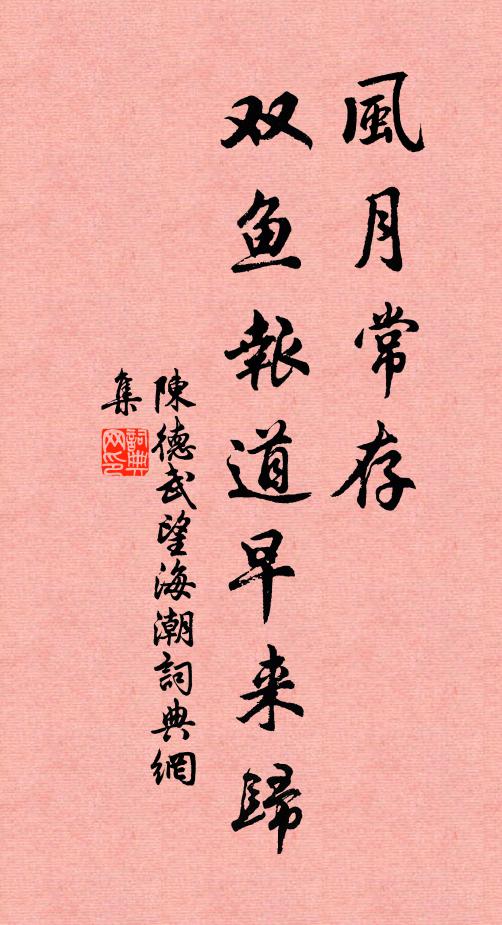 風月常存
双鱼報道早来歸
陳德武望海潮詞典網
集
詞典网印